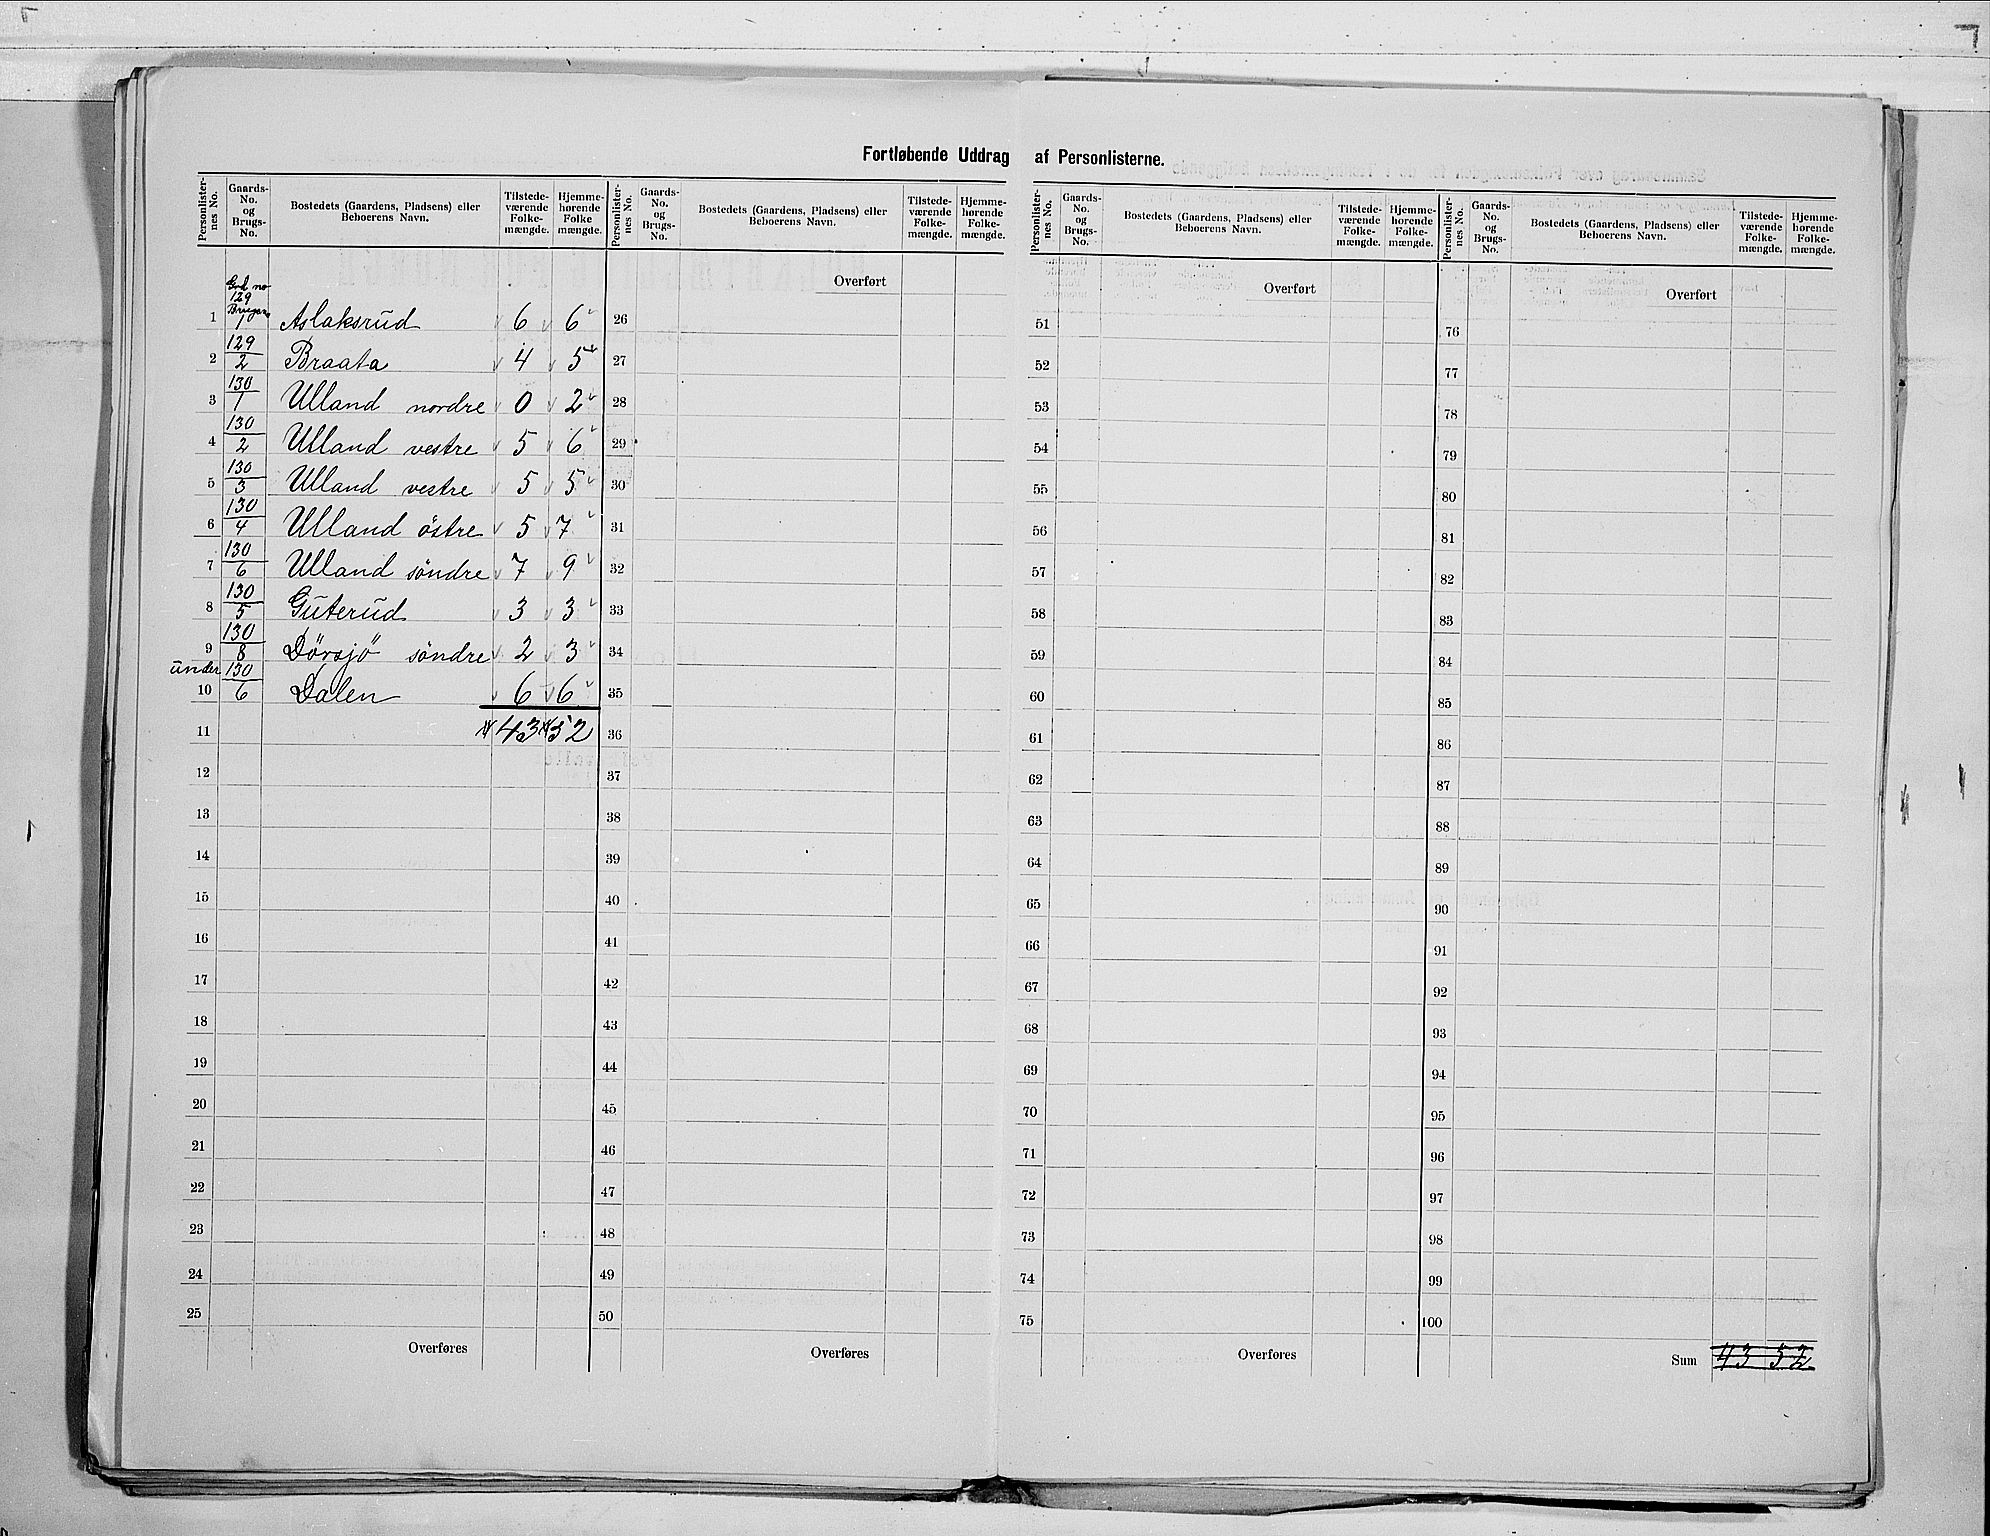 Fortløbende Uddrag af Personlisterne.
Personlisternes No. | Gaards-No. og Brugs-No. | Bostedets (Gaardens, Pladsens) eller Beboerens Navn. | Tilstedeværende Folkemængde. | Hjemmehørende Folkemængde.
Personlisternes No. | Gaards-No. og Brugs-No. | Bostedets (Gaardens, Pladsens) eller Beboerens Navn. | Tilstedeværende Folkemængde. | Hjemmehørende Folkemængde.
Personlisternes No. | Gaards-No. og Brugs-No. | Bostedets (Gaardens, Pladsens) eller Beboerens Navn. | Tilstedeværende Folkemængde. | Hjemmehørende Folkemængde.
Personlisternes No. | Gaards-No. og Brugs-No. | Bostedets (Gaardens, Pladsens) eller Beboerens Navn. | Tilstedeværende Folkemængde. | Hjemmehørende Folkemængde.
1 129/1 Aslaksrud 6 6
2 129/2 Braata 4 5
3 130/1 Ulland nordre 0 2
4 130/2 Ulland vestre 5 6
5 130/3 Ulland vestre 5 5
6 130/4 Ulland östre 5 7
7 130/6 Ulland söndre 7 9
8 130/5 Guterud 3 3
9 130/8 Dörsjö söndre 2 3
under
10 130/6 Dalen 6 6
11 43 52
12
13
14
15
16
17
18
19
20
21
22
23
24
25
Overføres
Overført
26
27
28
29
30
31
32
33
34
35
36
37
38
39
40
41
42
43
44
45
46
47
48
49
50
Overføres
Overført
51
52
53
54
55
56
57
58
59
60
61
62
63
64
65
66
67
68
69
70
71
72
73
74
75
Overføres
Overført
76
77
78
79
80
81
82
83
84
85
86
87
88
89
90
91
92
93
94
95
96
97
98
99
100
Sum 43 52